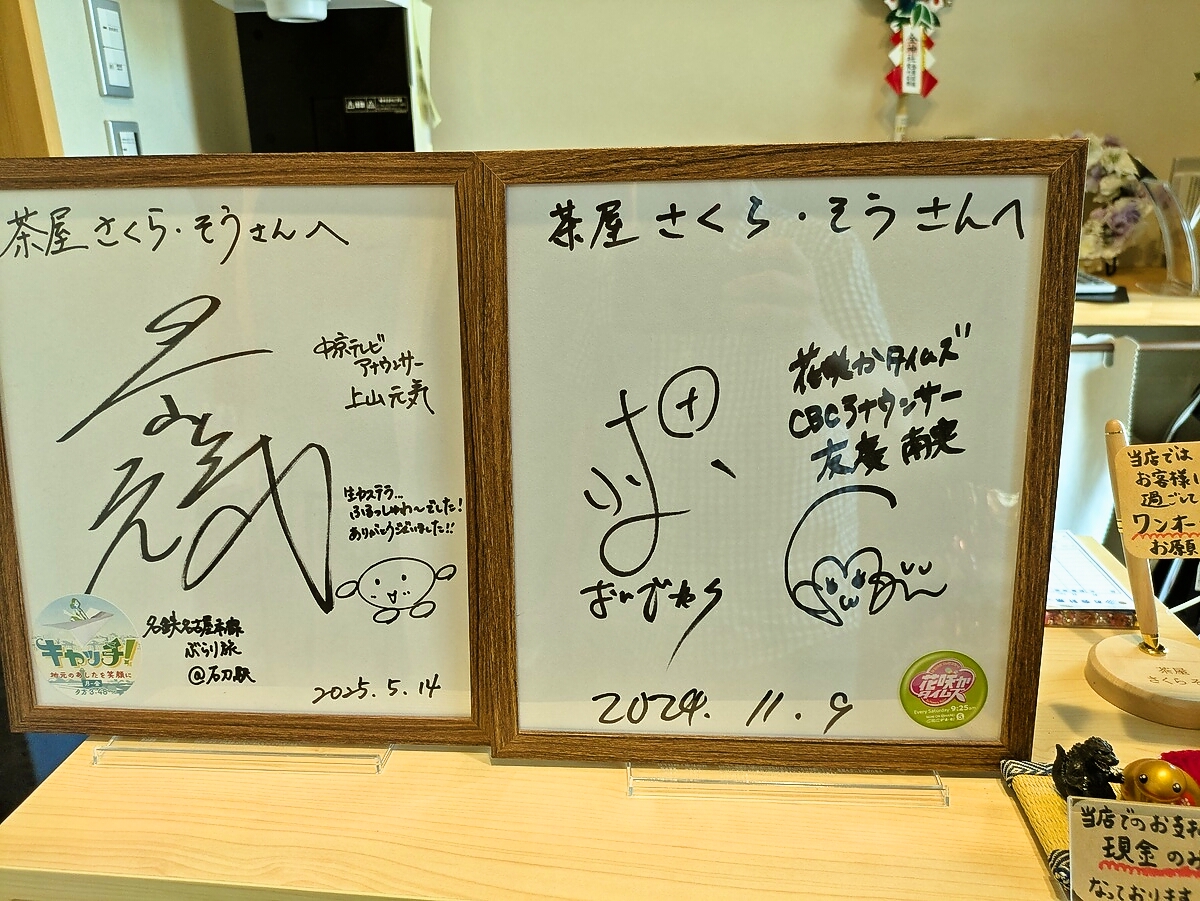 茶屋 さくら・そうさんへ
中京テレビ
アナウンサー
上山元気
生カステラ…
ふわっしゅわ〜でした!
ありがとうございました!!
名鉄名古屋本線
ぶらり旅
@石刀駅
2025.5.14
キャッチ!
地元のあしたを笑顔に
茶屋 さくら・そう さんへ
花咲かタイムズ
CBCアナウンサー
友廣 南実
2024.11.9
花咲か
タイムズ
Every Saturday 9:25am
当店では
お客様に
過ごして
ワンオー
お願
茶屋
さくら
当店でのお支払
現金のみ
なっております